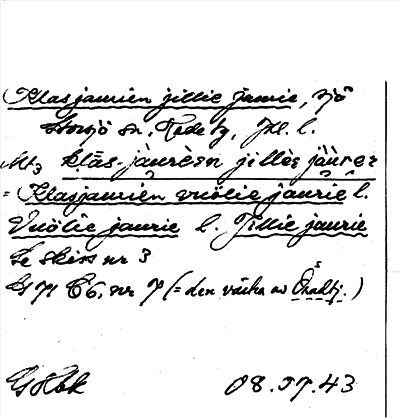 Klasjaurien jillie jaurie, sjö
Storsjö sn, Hede tg, Jtl. l.
klās-jàurèsn jillès jàùrez
= Klasjaurien vuölie jaurie l.
Vuölie jaurie l. Jillie jaurie
Se skiss nr 3
76, nr 7 (= den västra av Öradtj.)
08.07.43